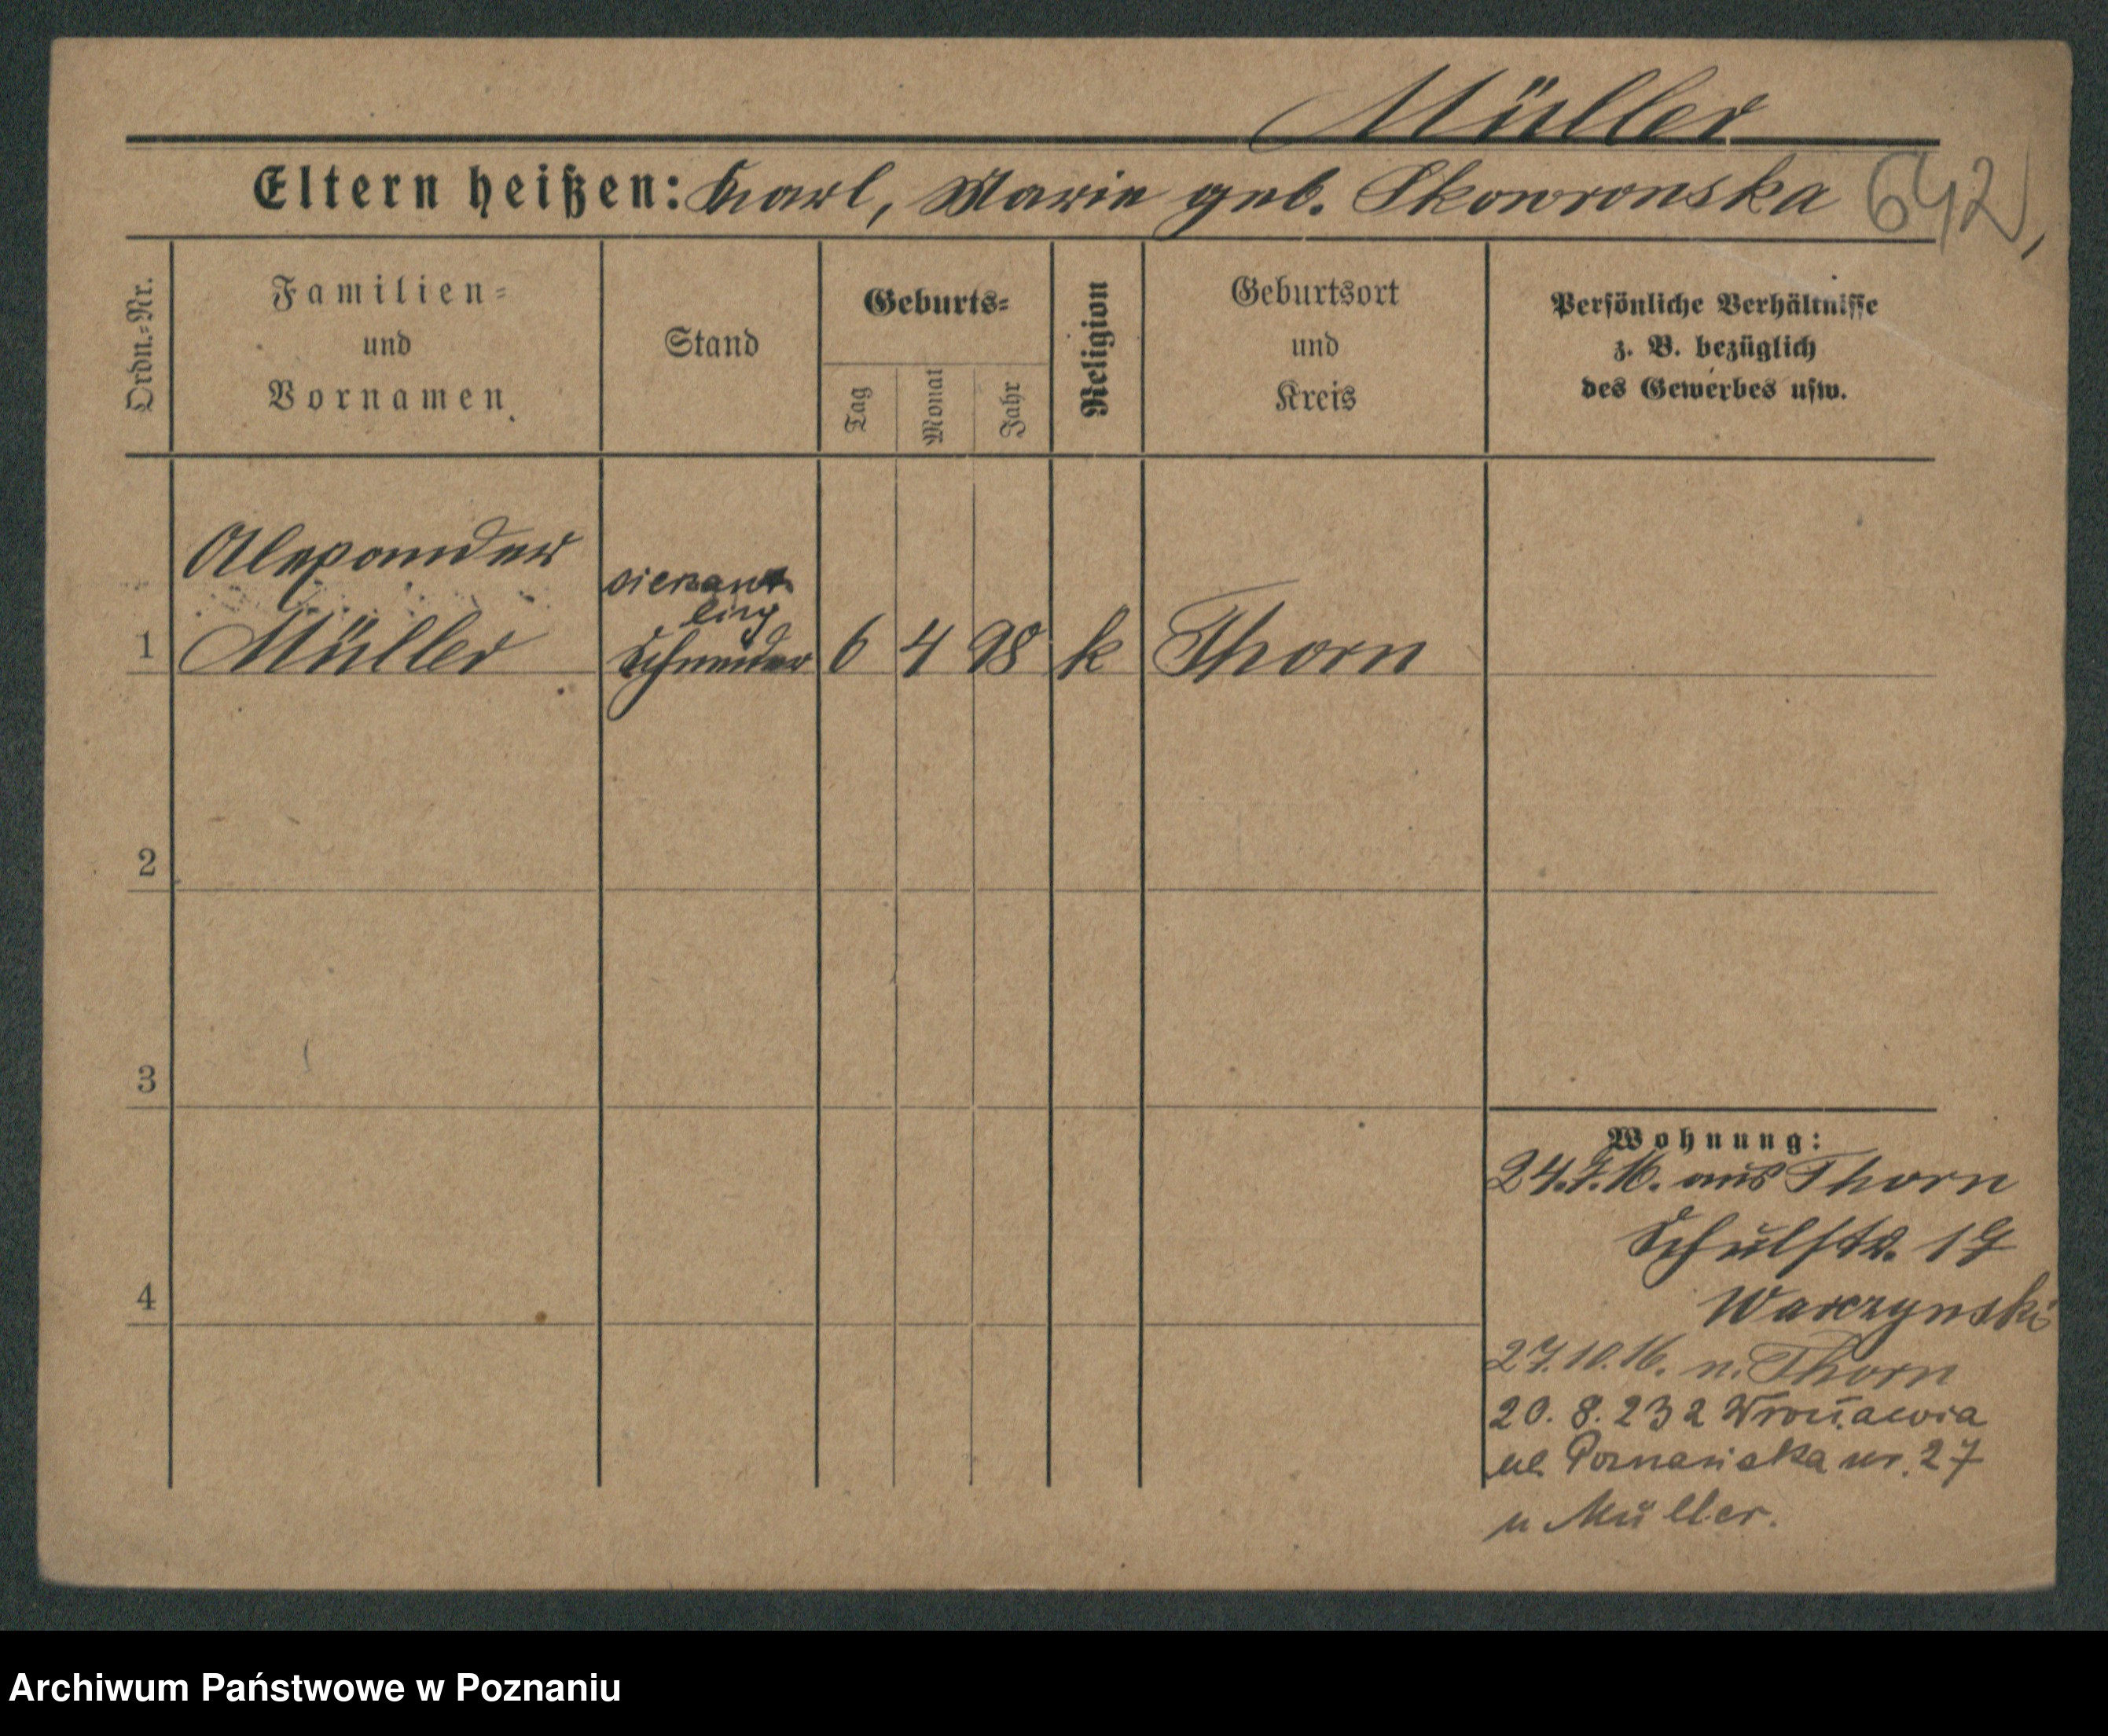 Müller
Eltern heißen: Karl, Marie geb. Skowronska 642
Ordn.=Nr.
Familien=
und
Vornamen
Stand
Geburts=
Tag
Monat
Jahr
Religion
Geburtsort
und
Kreis
Persönliche Verhältnisse
z. B. bezüglich
des Gewerbes usw.
Alexander
ling
1 Müller Schneider 6 4 98 k Thorn
2
3
4
Wohnung:
24.7.16. aus Thorn
Schulstr. 17
Warczynski
27.10.16. n. Thorn
20. 8. 23 z
ul Poznańska nr. 27
u Müller.
Archiwum Państwowe w Poznaniu